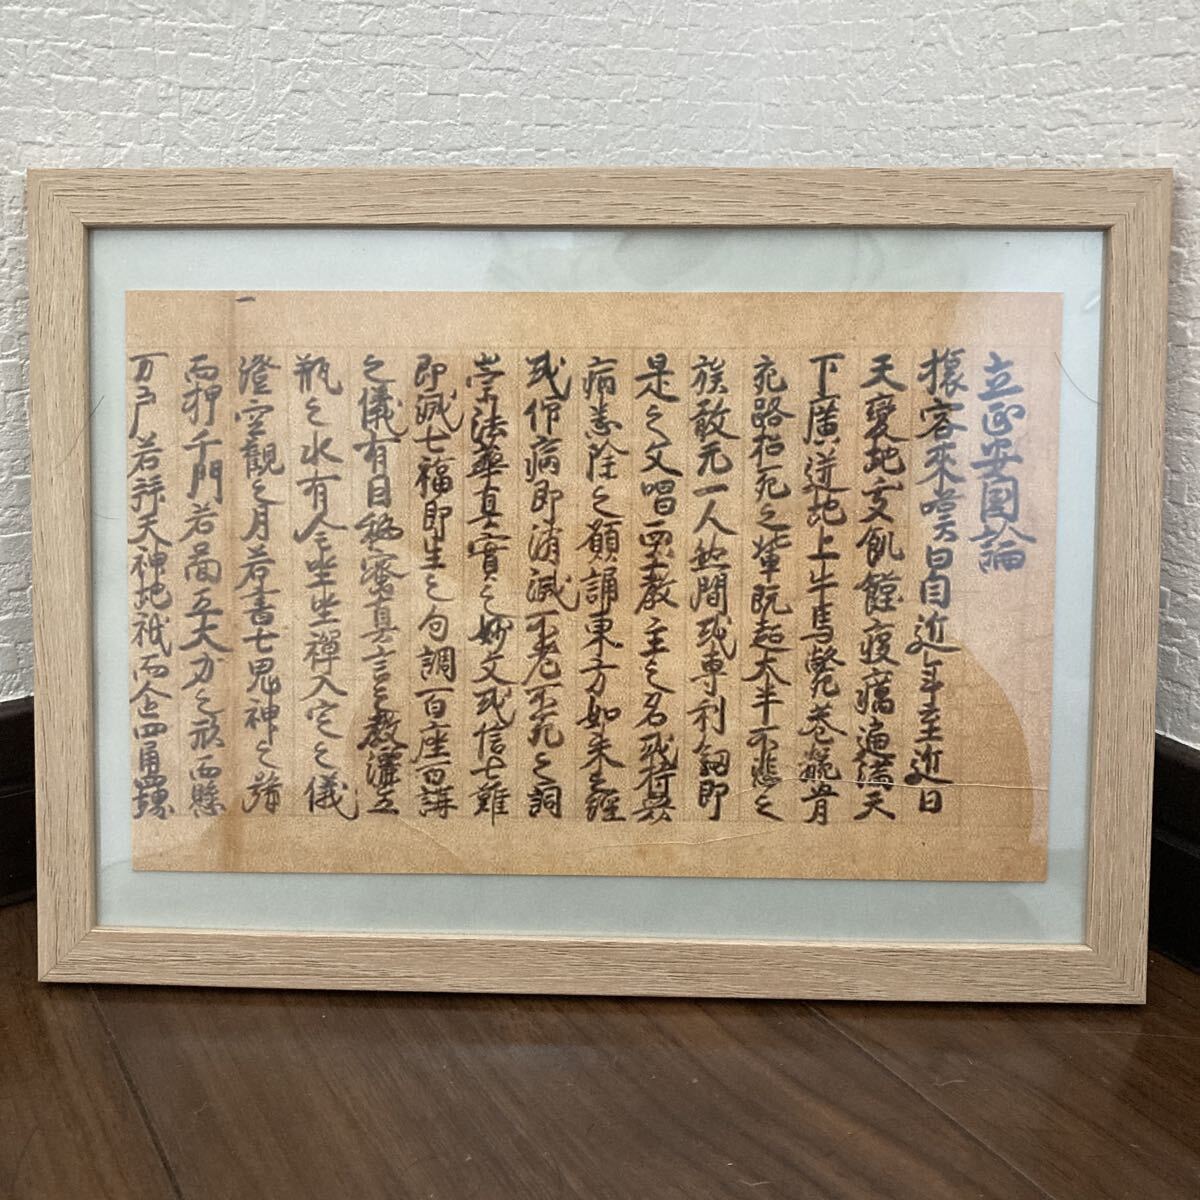 立正安国論
旅客来嘆曰自近年至近日
天變地夭飢饉疫癘遍満天
下廣迸地上牛馬斃巷骸骨
充路招死之輩既超大半不悲之
族敢无一人然間或専利劔即
是之文唱西土教主之名或持衆
病悉除之願誦東方如来之經
或仰病即消滅不老不死之詞
崇法華真實之妙文或信七難
即滅七福即生之句調百座百講
之儀有因秘密真言之教灑五
瓶之水有全坐禅入定之儀
澄空觀之月若書七鬼神之号
而押千門若啚五大力之形而懸
万戸若拝天神地祇而企四角四堺